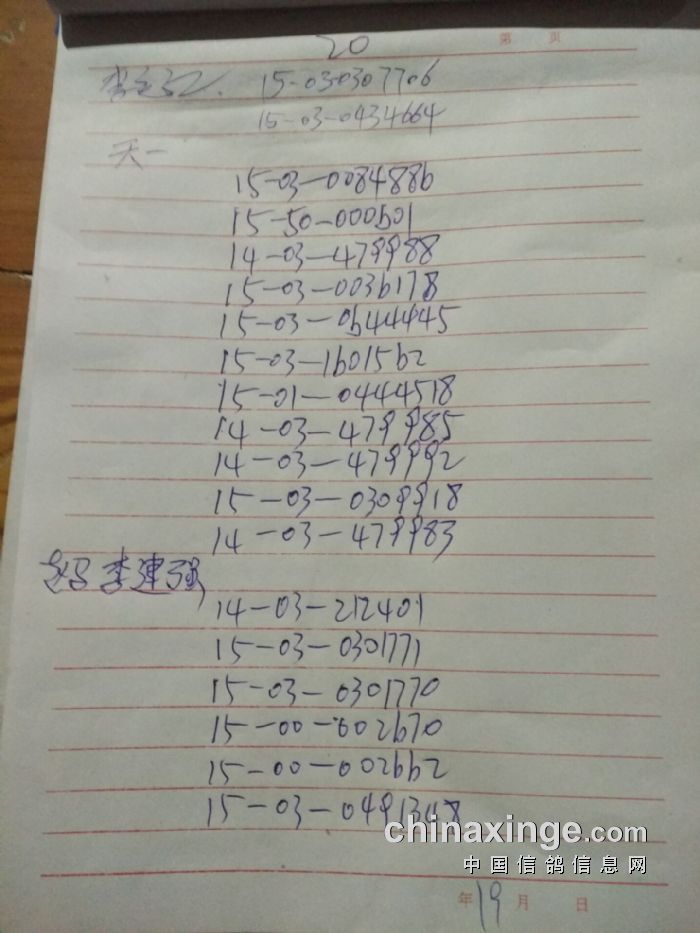 20
第 页
15-03-0307706
15-03-0434664
天一
15-03-0084886
15-50-000601
14-03-479988
15-03-0036178
15-03-0644445
15-03-1601562
15-01-0444518
14-03-479985
14-03-479992
15-03-0309918
14-03-479983
李建强
14-03-212401
15-03-0301771
15-03-0301770
15-00-002670
15-00-002662
15-03-0491348
chinaxinge.com
中国信鸽信息网
年 19 月 日